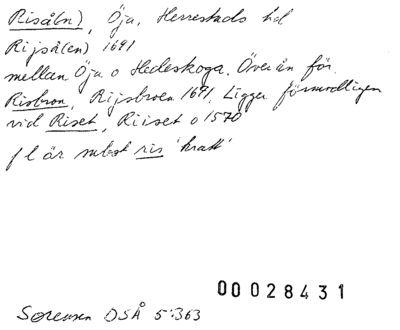 Riså(n), Öja, Herrestads hd
Rijså(en) 1691
mellan Öja o Hedeskoga. Över ån för
Risbron, Rijsbroen 1691. Ligger förmodligen
vid Riset, Riiset o 1570
fl är subst ris 'kratt'
00028431
Sorensen DSÅ 5:363